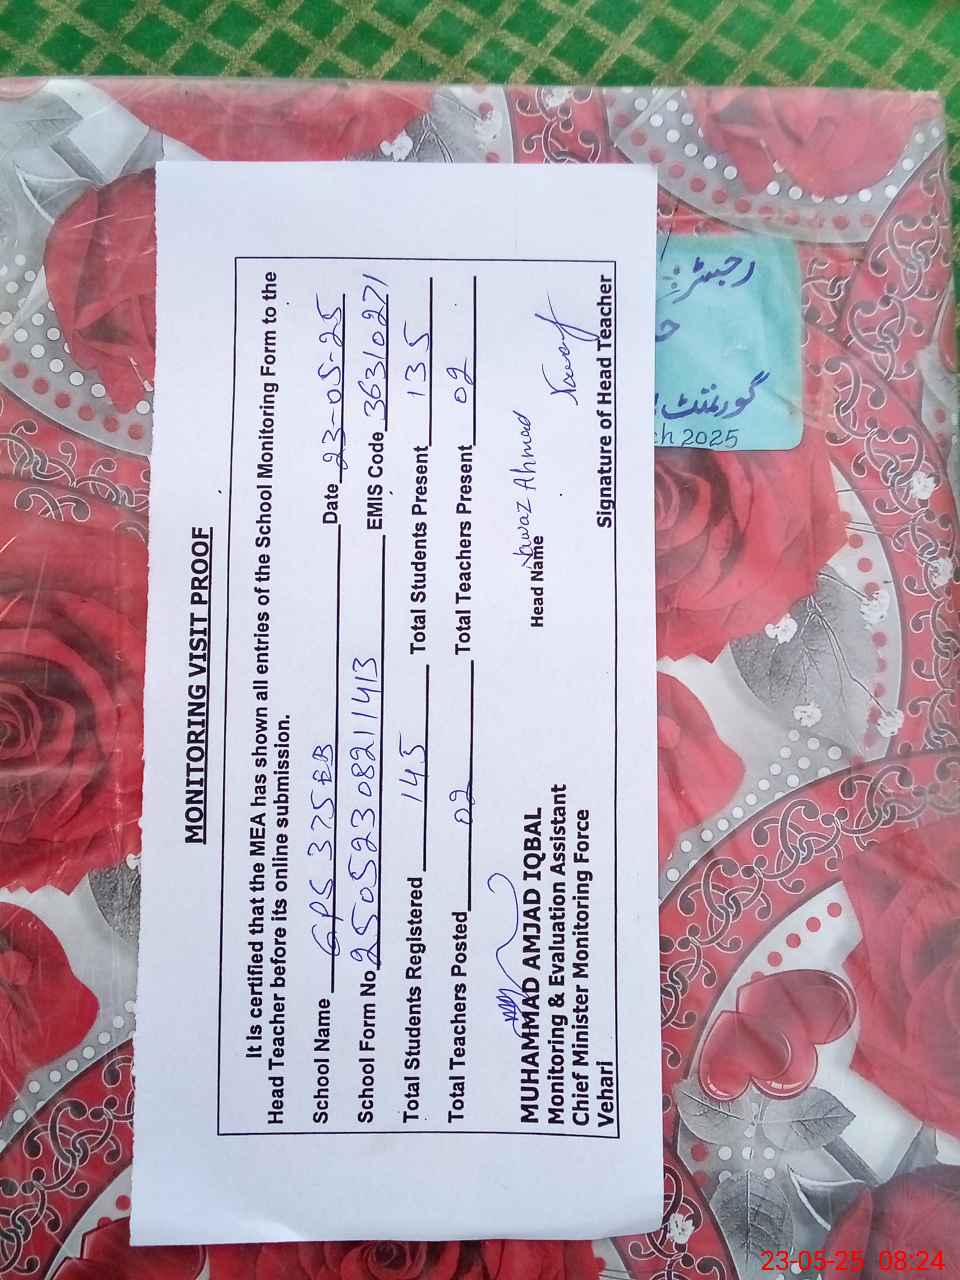 MONITORING VISIT PROOF
It is certified that the MEA has shown all entries of the School Monitoring Form to the
Head Teacher before its online submission.
School Name GPS 375EB Date 23-05-25
School Form No 25052308211413 EMIS Code 36310271
Total Students Registered 145 Total Students Present 135
Total Teachers Posted 02 Total Teachers Present 02
Head Name Nawaz Ahmad
MUHAMMAD AMJAD IQBAL
Monitoring & Evaluation Assistant
Chief Minister Monitoring Force
Vehari
Signature of Head Teacher
رجسٹر
گورنمنٹ
ch 2025
23-05-25 08:24